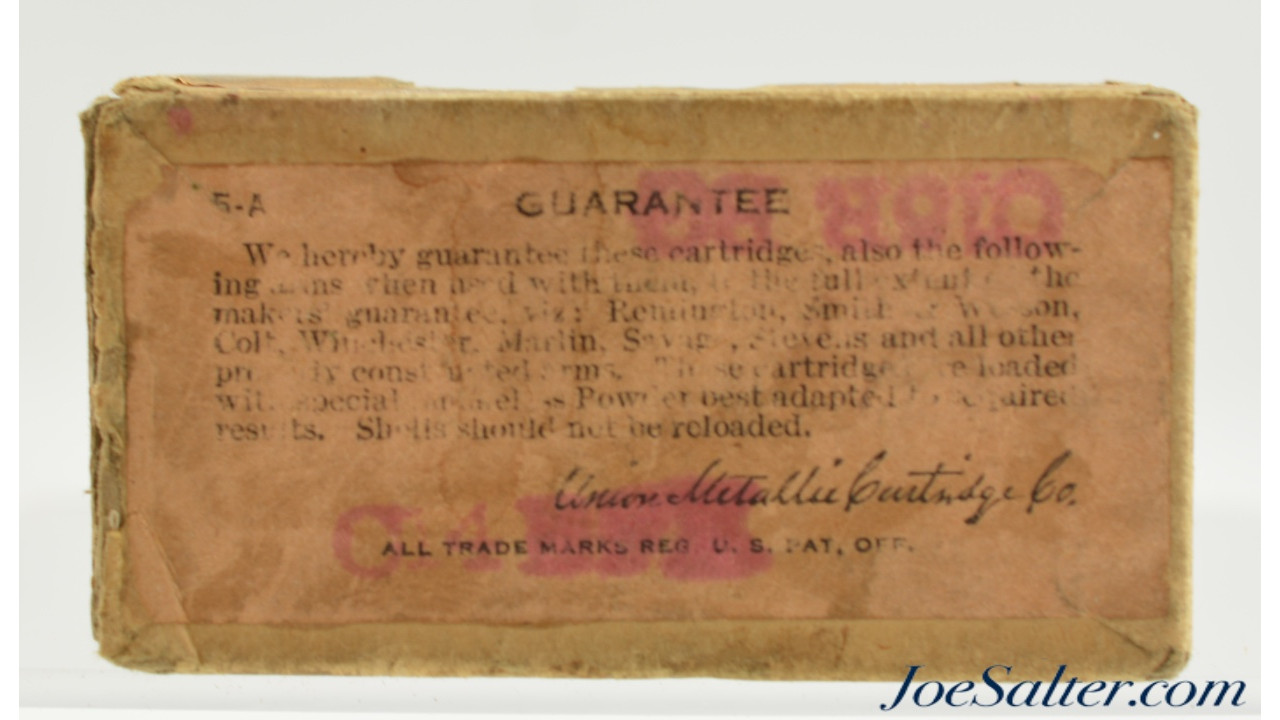 5-A
GUARANTEE
We hereby guarantee these cartridges, also the follow-
ing arms when used with them, to the full extent of the
makers' guarantee, viz: Remington, Smith & Wesson,
Colt, Winchester, Marlin, Savage, Stevens and all other
properly constructed arms. These cartridges are loaded
with special Smokeless Powder best adapted to required
results. Shells should not be reloaded.
Union Metallic Cartridge Co.
ALL TRADE MARKS REG. U. S. PAT, OFF.
JoeSalter.com